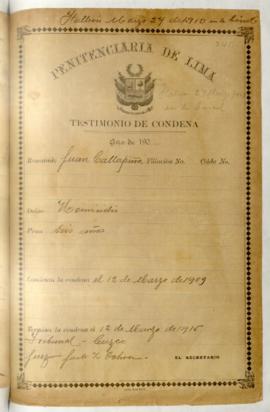 Falleció Marzo 27 de 1910
PENITENCIARIA DE LIMA
TESTIMONIO DE CONDENA
Año de 190
Rematado Juan Callapiña Filiación No. Celda No.
Delito Homicidio
Pena seis años
Comienza la condena el 12 de Marzo de 1909
Termina la condena el 12 de Marzo de 1915
Tribunal - Cuzco
Juez
EL SECRETARIO